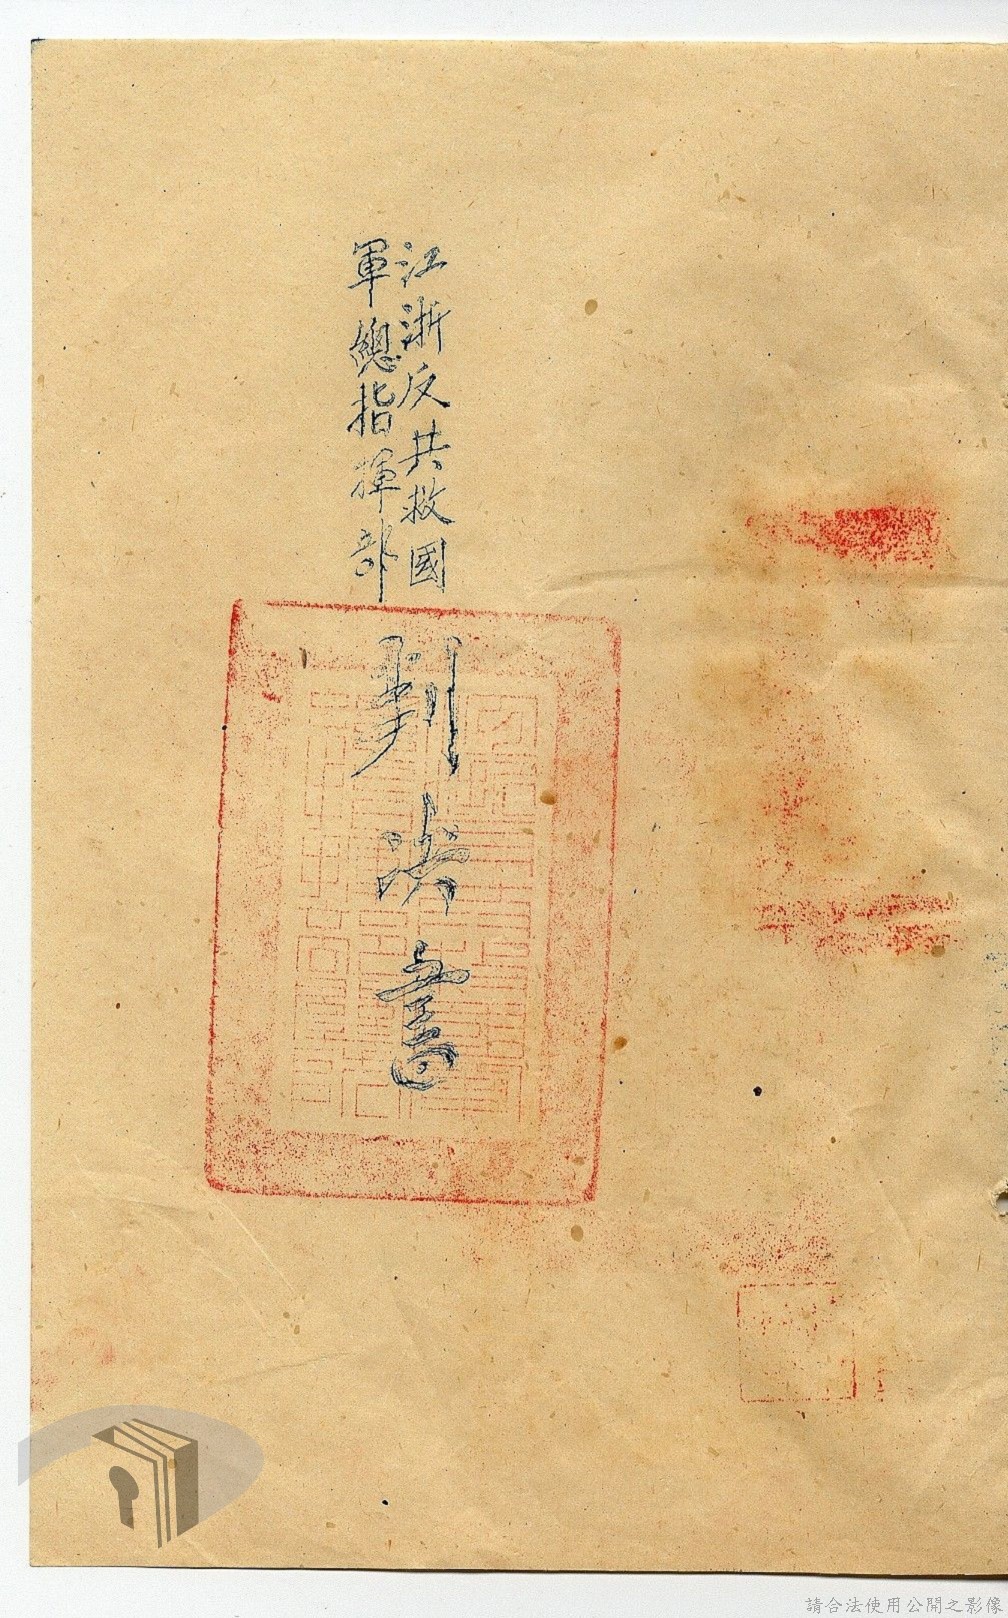 江浙反共救國
軍總指揮部
判決書
請合法使用公開之影像